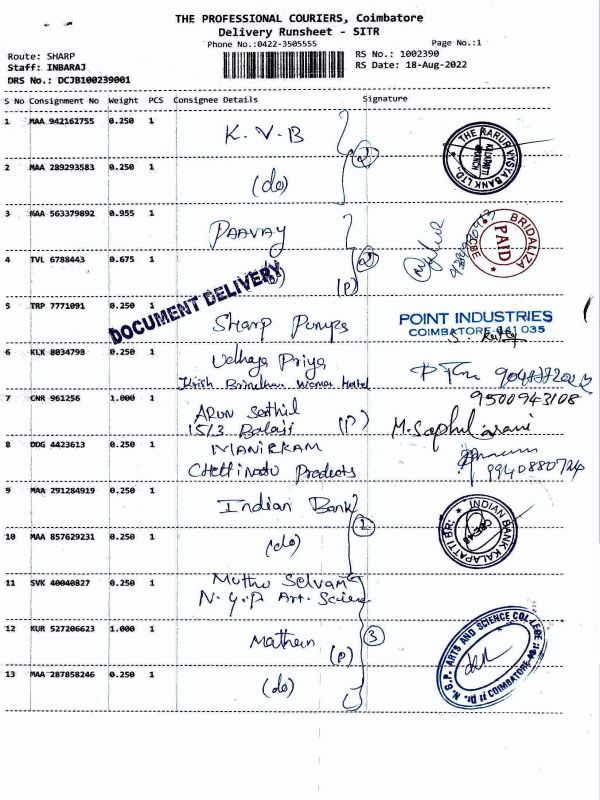 THE PROFESSIONAL COURIERS, Coimbatore
Delivery Runsheet - SITR
Phone No.:0422-3505555
Page No.:1
Route: SHARP
Staff: INBARAJ
DRS No.: DCJB100239001
RS No.: 1002390
RS Date: 18-Aug-2022
S No Consignment No Weight PCS Consignee Details Signature
1 MAA 942162755 0.250 1 K.V.B
THE KARUR VYSYA BANK LTD. KALAPATTI BRANCH
2 MAA 289293583 0.250 1 (do) 2
3 MAA 563379892 0.955 1 PAAVAY
BRIDALIZA PAID CBE
4 TVL 6788443 0.675 1 (P) 2
DOCUMENT DELIVERY
5 TRP 7771091 0.250 1 Sharp Pumps
POINT INDUSTRIES
COIMBATORE-641 035
6 KLK 8034798 0.250 1 Udhaya Priya
7 CNR 961256 1.000 1 Arun Senthil
15/3 Balaji (P)
9500943108
8 DDG 4423613 0.250 1 MANICKAM
Chettinadu Products
9940880724
9 MAA 291284919 0.250 1 Indian Bank
INDIAN BANK KALAPATTI BR:
10 MAA 857629231 0.250 1 (do) 2
11 SVK 40040827 0.250 1 Muthu Selvam
N.G.P Art. Science
12 KUR 527206623 1.000 1 (P) 3
N.G.P. ARTS AND SCIENCE COLLEGE COIMBATORE
13 MAA 287858246 0.250 1 (do)